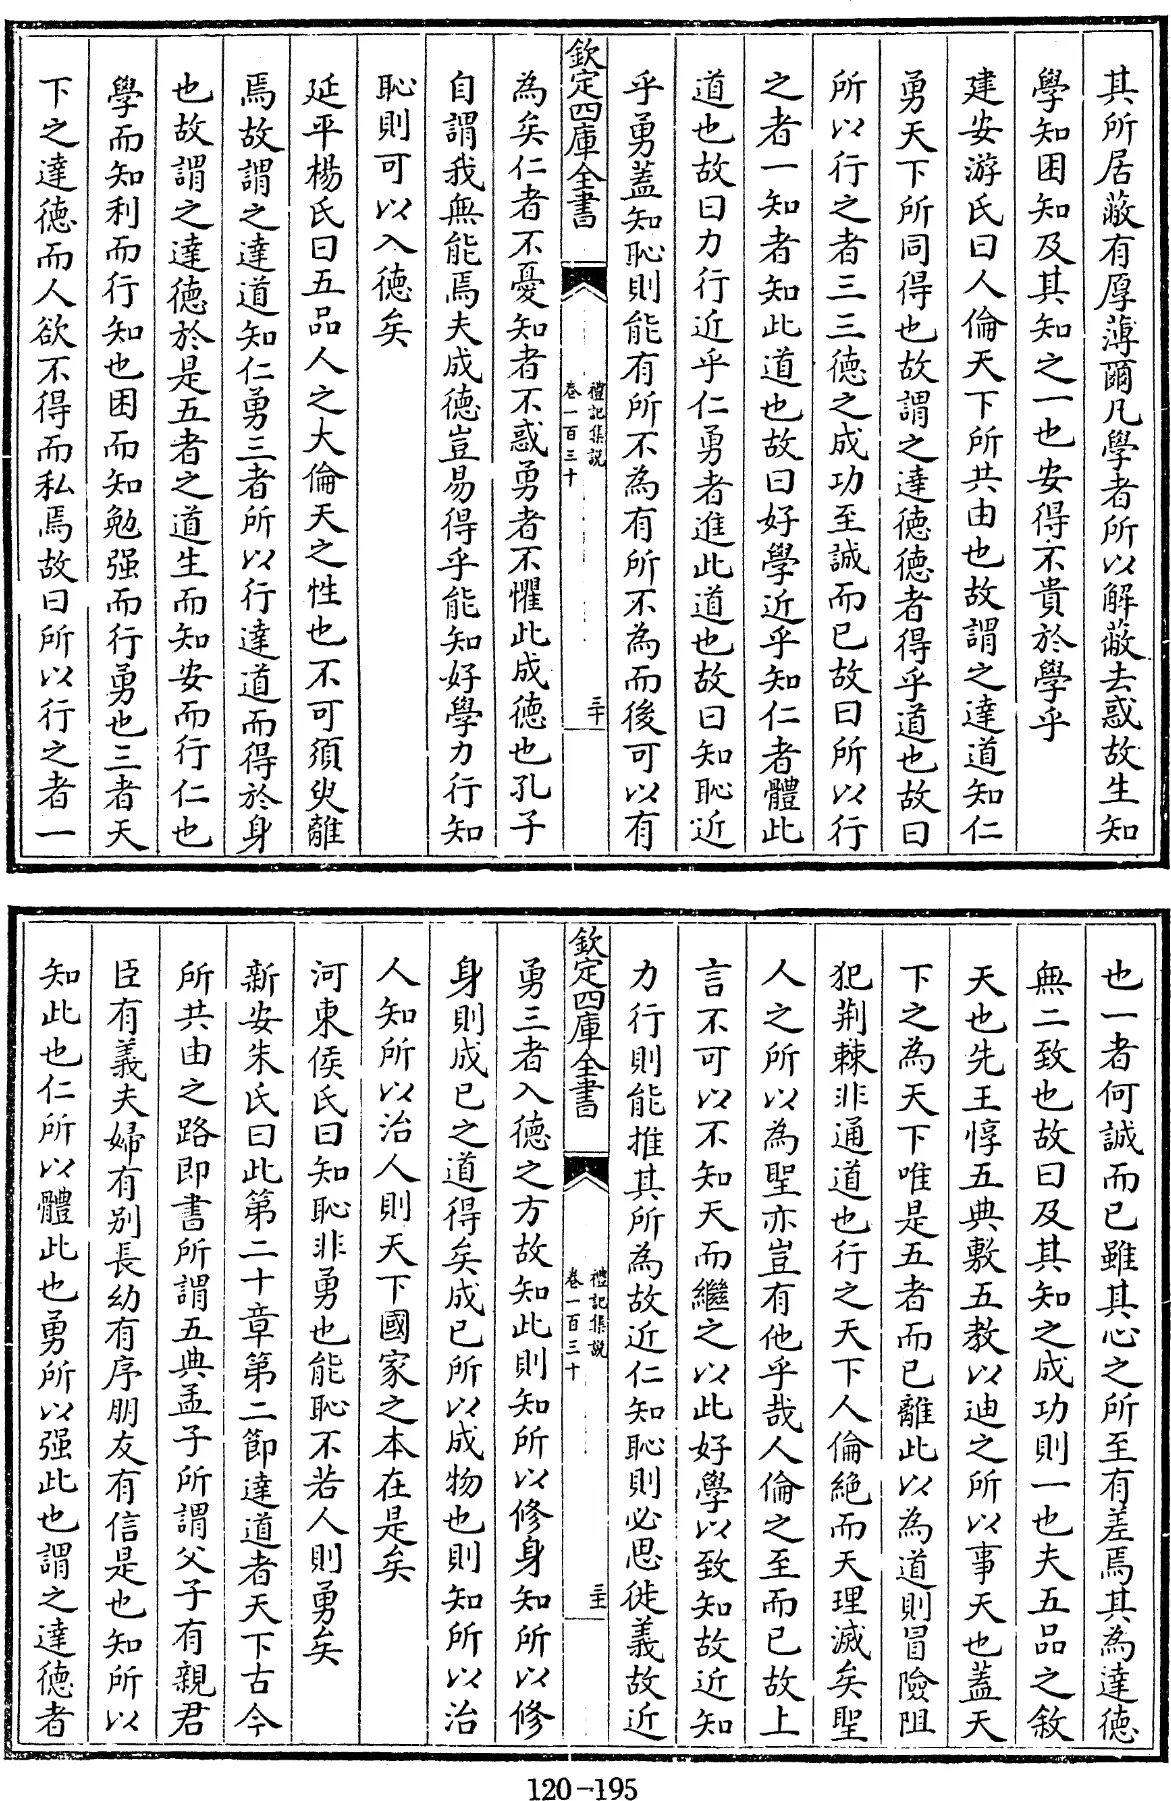 其所居蔽有厚薄爾凡學者所以解蔽去惑故生知
學知困知及其知之一也安得不貴於學乎
建安游氏曰人倫天下所共由也故謂之達道知仁
勇天下所同得也故謂之達德德者得乎道也故曰
所以行之者三三德之成功至誠而已故曰所以行
之者一知者知此道也故曰好學近乎知仁者體此
道也故曰力行近乎仁勇者進此道也故曰知恥近
乎勇蓋知恥則能有所不為有所不為而後可以有
欽定四庫全書
禮記集說
卷一百三十
三十
為矣仁者不憂知者不惑勇者不懼此成德也孔子
自謂我無能焉夫成德豈易得乎能知好學力行知
恥則可以入德矣
延平楊氏曰五品人之大倫天之性也不可須臾離
焉故謂之達道知仁勇三者所以行達道而得於身
也故謂之達德於是五者之道生而知安而行仁也
學而知利而行知也困而知勉强而行勇也三者天
下之達德而人欲不得而私焉故曰所以行之者一
也一者何誠而已雖其心之所至有差焉其為達德
無二致也故曰及其知之成功則一也夫五品之敘
天也先王惇五典敷五教以迪之所以事天也蓋天
下之為天下唯是五者而已離此以為道則冒險阻
犯荆棘非通道也行之天下人倫絶而天理滅矣聖
人之所以為聖亦豈有他乎哉人倫之至而已故上
言不可以不知天而繼之以此好學以致知故近知
力行則能推其所為故近仁知恥則必思徙義故近
欽定四庫全書
禮記集說
卷一百三十
三十一
勇三者入德之方故知此則知所以修身知所以修
身則成已之道得矣成已所以成物也則知所以治
人知所以治人則天下國家之本在是矣
河東侯氏曰知恥非勇也能恥不若人則勇矣
新安朱氏曰此第二十章第二節達道者天下古今
所共由之路即書所謂五典孟子所謂父子有親君
臣有義夫婦有别長幼有序朋友有信是也知所以
知此也仁所以體此也勇所以强此也謂之達德者
120-195